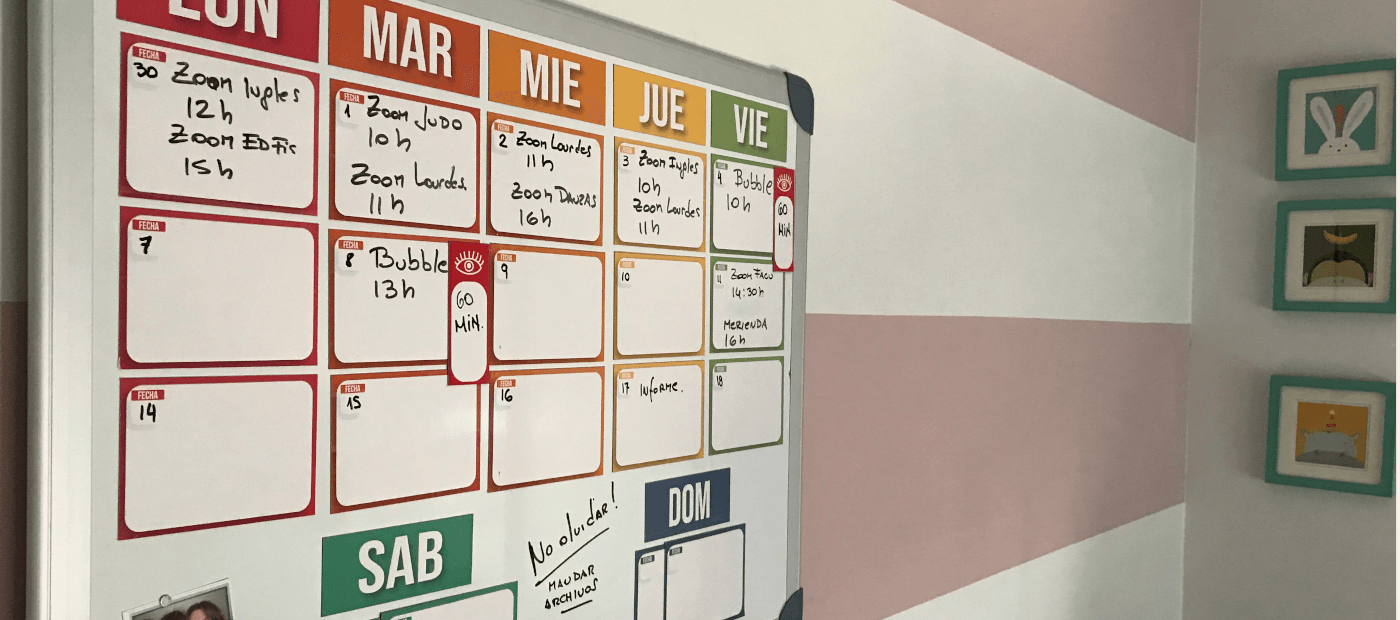 LUN
MAR
MIE
JUE
VIE
FECHA
30 Zoom Ingles
12h
Zoom ED Fis
15h
FECHA
1 Zoom JUDO
10h
Zoom Lourdes
11h
FECHA
2 Zoom Lourdes
11h
Zoom DANZAS
16h
FECHA
3 Zoom Ingles
10h
Zoom Lourdes
11h
FECHA
4 Bubble
10h
60
MiN.
FECHA
7
FECHA
8 Bubble
13h
60
MiN.
FECHA
9
FECHA
10
FECHA
11 Zoom FACU
14:30h
MERIENDA
16h
FECHA
14
FECHA
15
FECHA
16
FECHA
17 INFORME.
FECHA
18
SAB
No olvidar!
MANDAR
ARCHIVOS
DOM
FECHA
FECHA